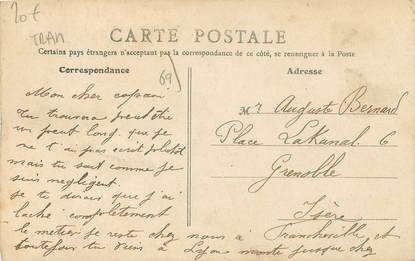 20€
TRAM
CARTE POSTALE
Certains pays étrangers n'acceptant pas la correspondance de ce côté, se renseigner à la Poste
Correspondance
69
Adresse
Mon cher copain.
Tu trouveras peut être
un peut long. que je
ne t'ai pas écrit plutot
mais tu sait comme je
suis négligent.
je te dirais que j'ai
laché complètement
le metier je reste chez nous à Francheville et
toutefois tu viens à Lyon monte jusque chez
Mr Auguste Bernard
Place Lakanal. 6
Grenoble
Isère